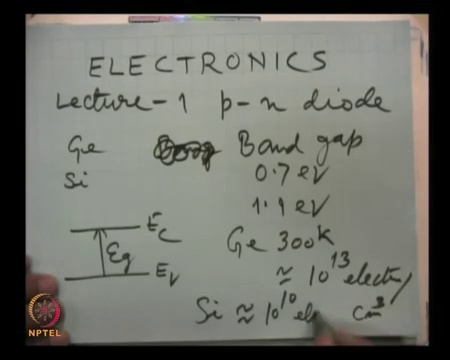 ELECTRONICS
Lecture-1 p-n diode
Ge Band gap
Si 0.7 ev
1.1 ev
Ec
Eg
Ev
Ge 300k
≈ 10^13 electrons/
Si ≈ 10^10 ele cm^3
NPTEL